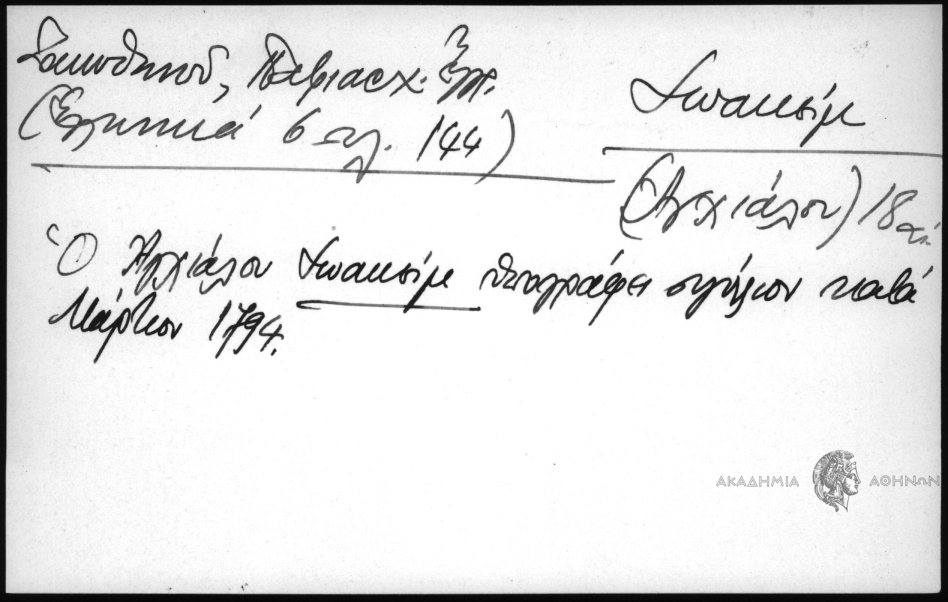 Σακκυθηνού, Πατριαρχ. Έγγρ.
(Ελληνικά 6 σελ. 144)
Ιωακείμ
(Αγχιάλου) 18 αι.
Ὁ Ἀγχιάλου Ιωακείμ υπογράφει σιγίλιον κατά
Μάρτιον 1794.
ΑΚΑΔΗΜΙΑ ΑΘΗΝΩΝ